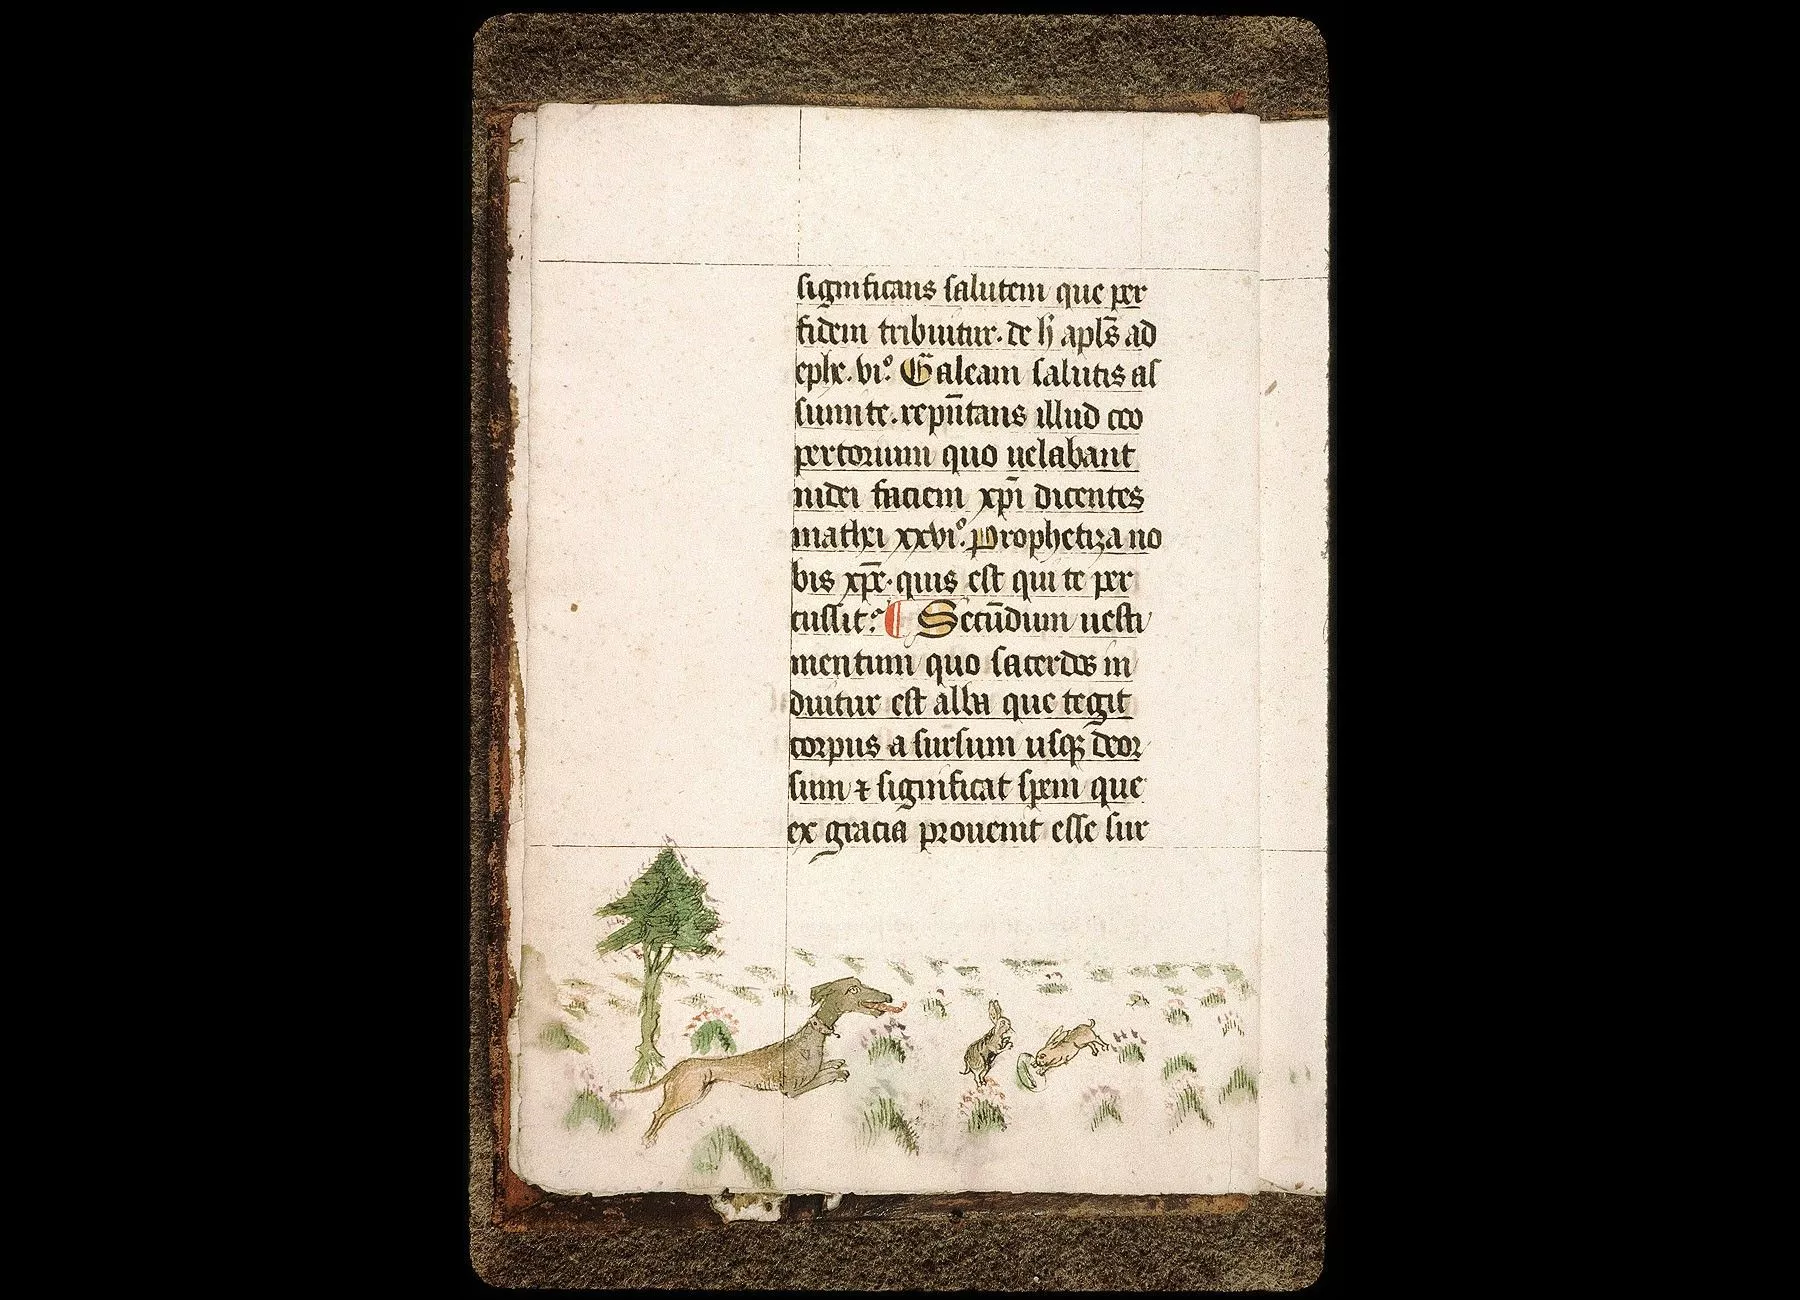 significans salutem que per
fidem tribuitur. de h̄ apl̄s ad
ephe. vi.º Galeam salutis as
sumite. rep̄ntans illud coo
pertorium quo uelabant
iudei faciem xp̄i dicentes
mathei xxvi.º Prophetiza no
bis xp̄e. quis est qui te per
cussit? ¶ Secūdum uesti
mentum quo sacerdos in
duitur est alba que tegit
corpus a sursum usqꝫ deor
sum ⁊ significat spem que
ex gracia prouenit esse sur